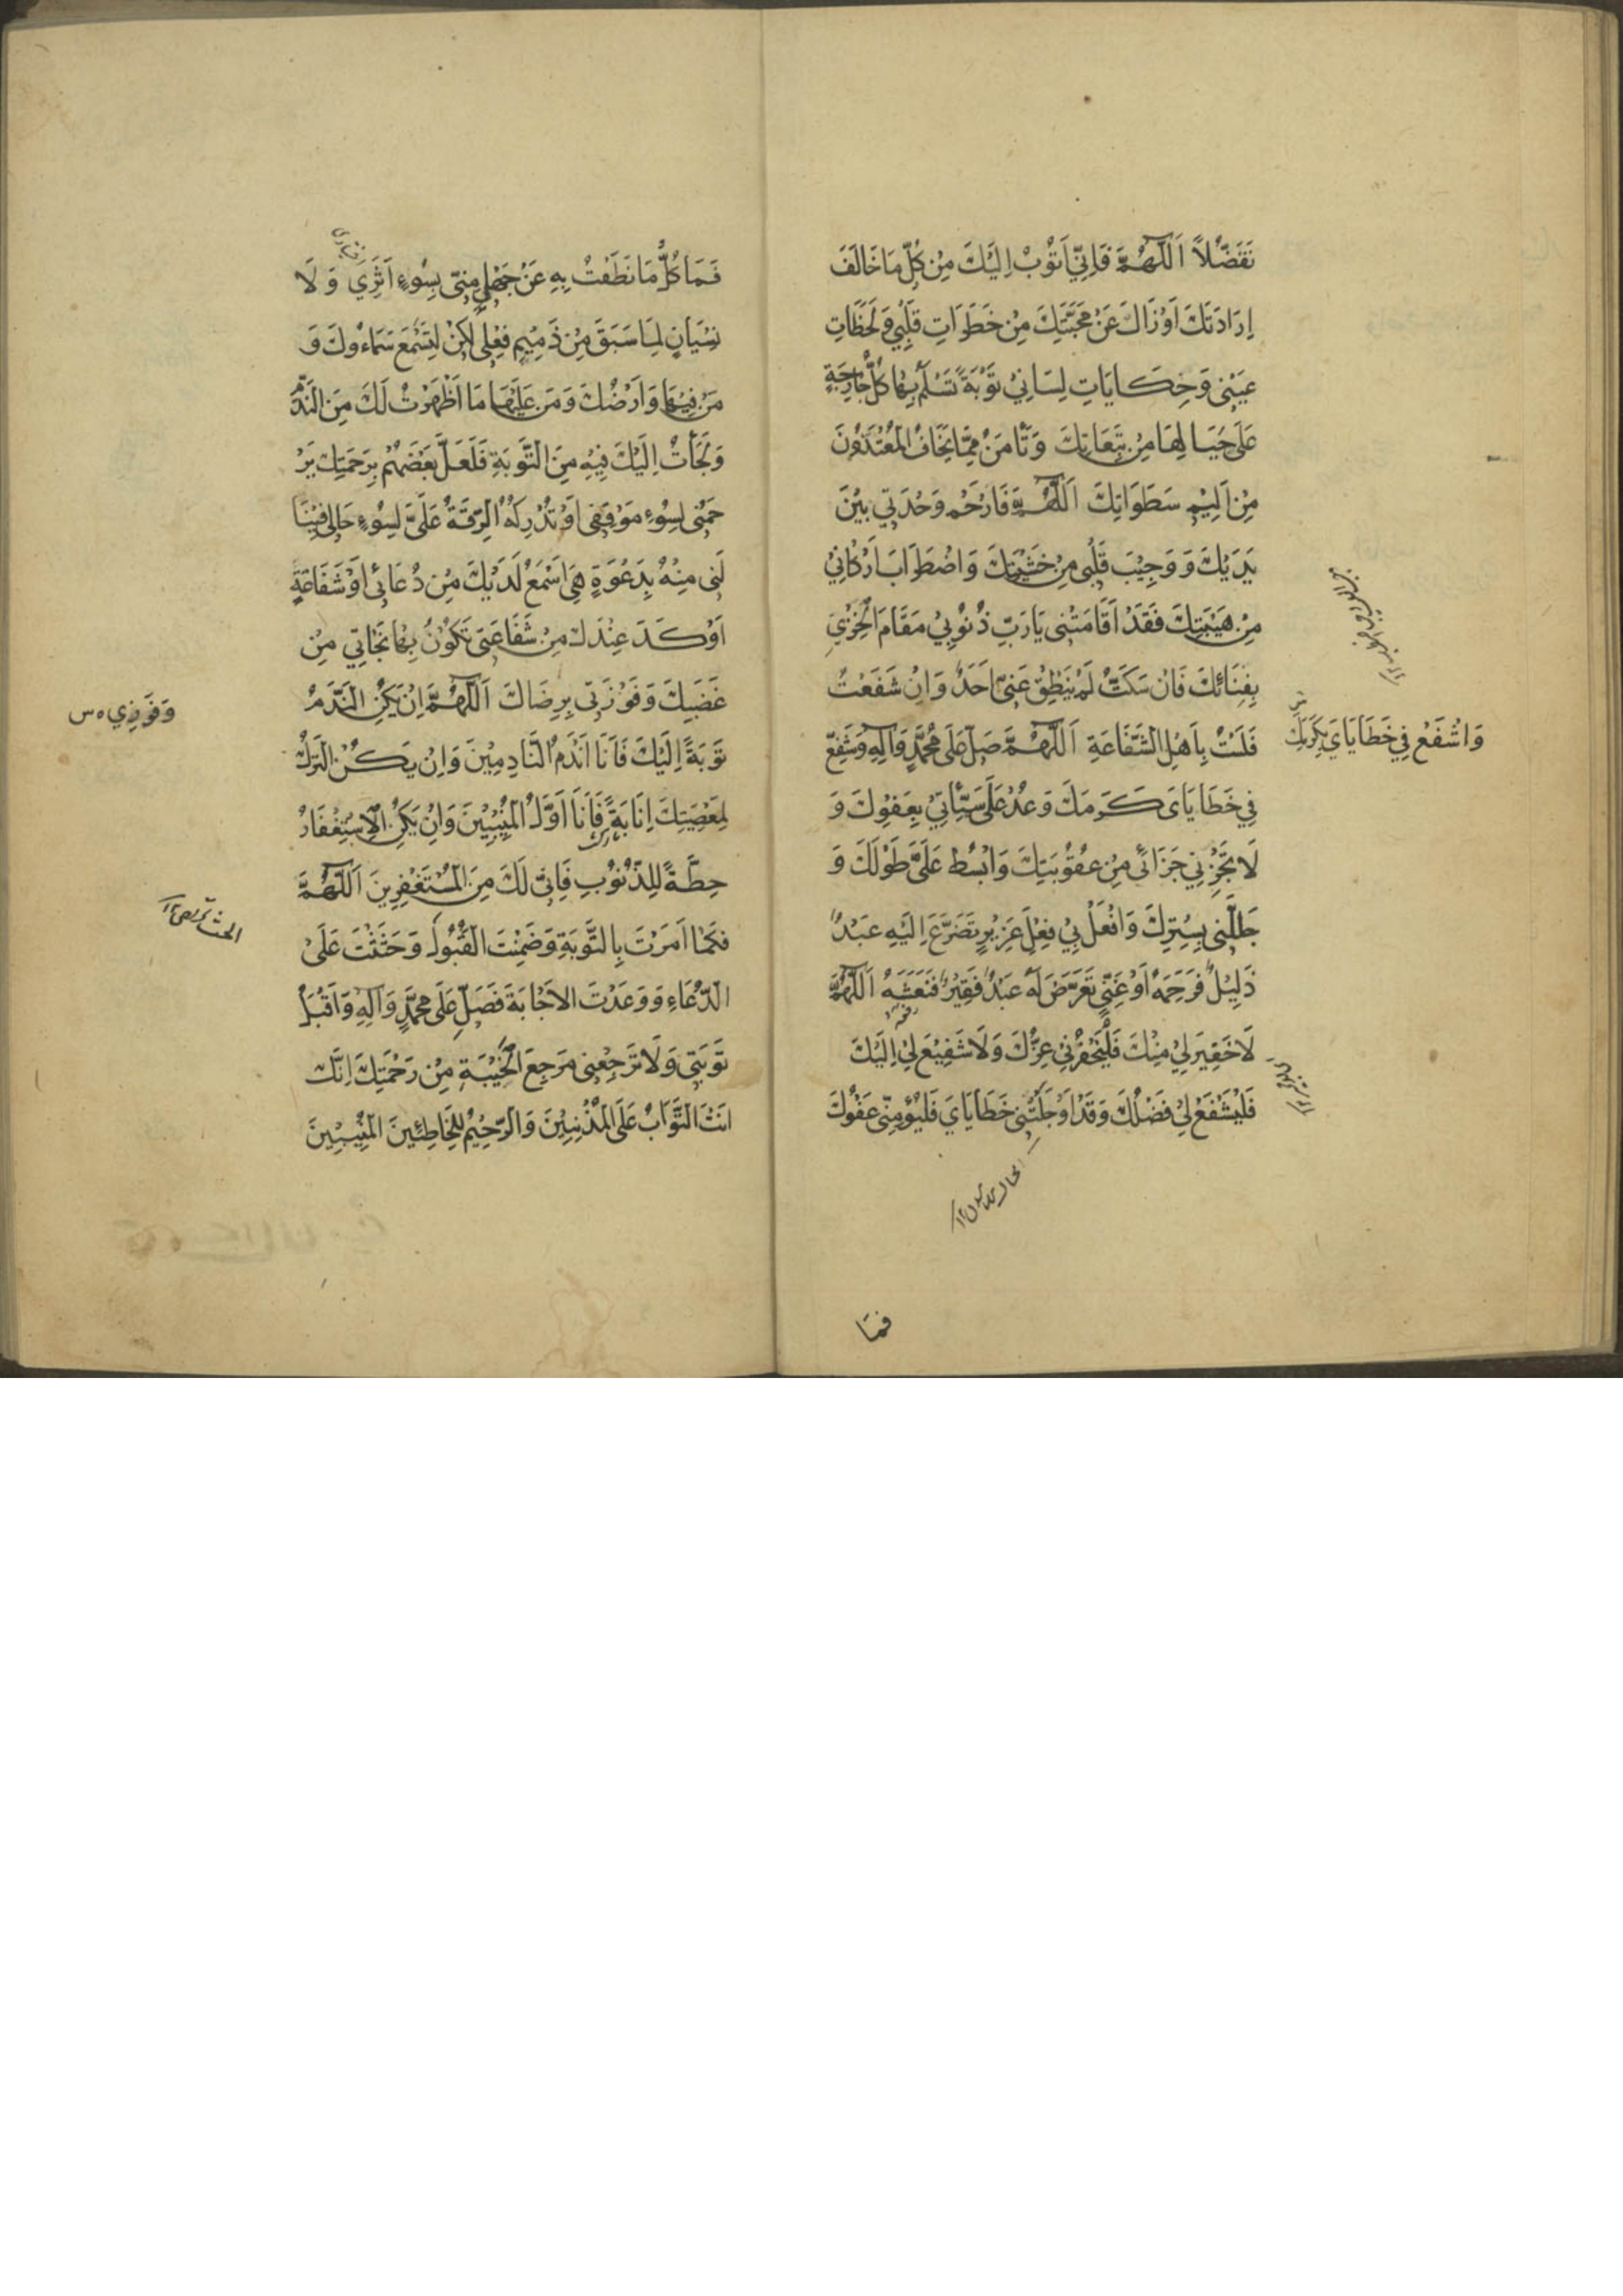 تَفَضُّلاً اَللّٰهُمَّ فَاِنِّي اَتُوْبُ اِلَيْكَ مِنْ كُلِّ مَا خَالَفَ
اِرَادَتَكَ اَوْ زَالَ عَنْ مَحَبَّتِكَ مِنْ خَطَرَاتِ قَلْبِيْ وَلَحَظَاتِ
عَيْنِى وَحِكَايَاتِ لِسَانِيْ تَوْبَةً تَسْلَمُ بِهَا كُلُّ جَارِحَةٍ
عَلٰى حِيَالِهَا مِنْ تَبِعَاتِكَ وَتَأْمَنُ مِمَّا يَخَافُ الْمُعْتَدُوْنَ
مِنْ اَلِيْمِ سَطَوَاتِكَ اَللّٰهُمَّ فَارْحَمْ وَحْدَتِي بَيْنَ
يَدَيْكَ وَوَجِيْبَ قَلْبِى مِنْ خَشْيَتِكَ وَاضْطِرَابَ اَرْكَانِيْ
مِنْ هَيْبَتِكَ فَقَدْ اَقَامَتْنِى يَا رَبِّ ذُنُوْبِيْ مَقَامَ الْخِزْيِ
بِفِنَائِكَ فَاِنْ سَكَتُّ لَمْ يَنْطِقْ عَنِّى اَحَدٌ وَاِنْ شَفَعْتُ
فَلَسْتُ بِاَهْلِ الشَّفَاعَةِ اَللّٰهُمَّ صَلِّ عَلٰى مُحَمَّدٍ وَاٰلِهِ وَشَفِّعْ
وَاشْفَعْ فِيْ خَطَايَايَ بِكَرَمِكَ
فِيْ خَطَايَاىَ كَرَمَكَ وَعُدْ عَلٰى سَيِّئَاتِيْ بِعَفْوِكَ وَ
لَا تَجْزِنِي جَزَائِى مِنْ عُقُوْبَتِكَ وَابْسُطْ عَلَىَّ طَوْلَكَ وَ
جَلِّلْنِى بِسِتْرِكَ وَافْعَلْ بِيْ فِعْلَ عَزِيْزٍ تَضَرَّعَ اِلَيْهِ عَبْدٌ
ذَلِيْلٌ فَرَحِمَهٗ اَوْ غَنِيٍّ تَعَرَّضَ لَهٗ عَبْدٌ فَقِيْرٌ فَنَعَشَهٗ اَللّٰهُمَّ
لَا خَفِيْرَ لِيْ مِنْكَ فَلْيَخْفُرْنِيْ عِزُّكَ وَلَا شَفِيْعَ لِيْ اِلَيْكَ
فَلْيَشْفَعْ لِيْ فَضْلُكَ وَقَدْ اَوْجَلَتْنِى خَطَايَايَ فَلْيُؤْمِنِّى عَفْوُكَ
فَمَا
فَمَا كُلُّ مَا نَطَقْتُ بِهِ عَنْ جَهْلٍ مِنِّى بِسُوْءِ اَثَرِي وَلَا
نِسْيَانٍ لِمَا سَبَقَ مِنْ ذَمِيْمِ فِعْلِى لٰكِنْ لِتَسْمَعَ سَمَاءُوكَ وَ
مَنْ فِيْهَا وَاَرْضُكَ وَمَنْ عَلَيْهَا مَا اَظْهَرْتُ لَكَ مِنَ النَّدَمِ
وَلَجَأْتُ اِلَيْكَ فِيْهِ مِنَ التَّوْبَةِ فَلَعَلَّ بَعْضَهُمْ بِرَحْمَتِكَ يَرْ
حَمُنِى لِسُوْءِ مَوْقِفِى اَوْ تُدْرِكُهُ الرِّقَّةُ عَلَىَّ لِسُوْءِ حَالِى فَيَنَا
لَنِى مِنْهُ بِدَعْوَةٍ هِىَ اَسْمَعُ لَدَيْكَ مِنْ دُعَائِى اَوْ شَفَاعَةٍ
اَوْكَدَ عِنْدَكَ مِنْ شَفَاعَتِى تَكُوْنُ بِهَا نَجَاتِي مِنْ
غَضَبِكَ وَفَوْزَتِى بِرِضَاكَ اَللّٰهُمَّ اِنْ يَكُنِ النَّدَمُ
وَفَوْزِي
تَوْبَةً اِلَيْكَ فَاَنَا اَنْدَمُ النَّادِمِيْنَ وَاِنْ يَكُنِ التَّرْكُ
لِمَعْصِيَتِكَ اِنَابَةً فَاَنَا اَوَّلُ الْمُنِيْبِيْنَ وَاِنْ يَكُنِ الْاِسْتِغْفَارُ
حِطَّةً لِلذُّنُوْبِ فَاِنِّى لَكَ مِنَ الْمُسْتَغْفِرِيْنَ اَللّٰهُمَّ
فَكَمَا اَمَرْتَ بِالتَّوْبَةِ وَضَمِنْتَ الْقَبُوْلَ وَحَثَثْتَ عَلَى
الدُّعَاءِ وَوَعَدْتَ الْاِجَابَةَ فَصَلِّ عَلٰى مُحَمَّدٍ وَاٰلِهِ وَاقْبَلْ
تَوْبَتِى وَلَا تَرْجِعْنِى مَرْجِعَ الْخَيْبَةِ مِنْ رَحْمَتِكَ اِنَّكَ
اَنْتَ التَّوَّابُ عَلَى الْمُذْنِبِيْنَ وَالرَّحِيْمُ لِلْخَاطِئِيْنَ الْمُنِيْبِيْنَ